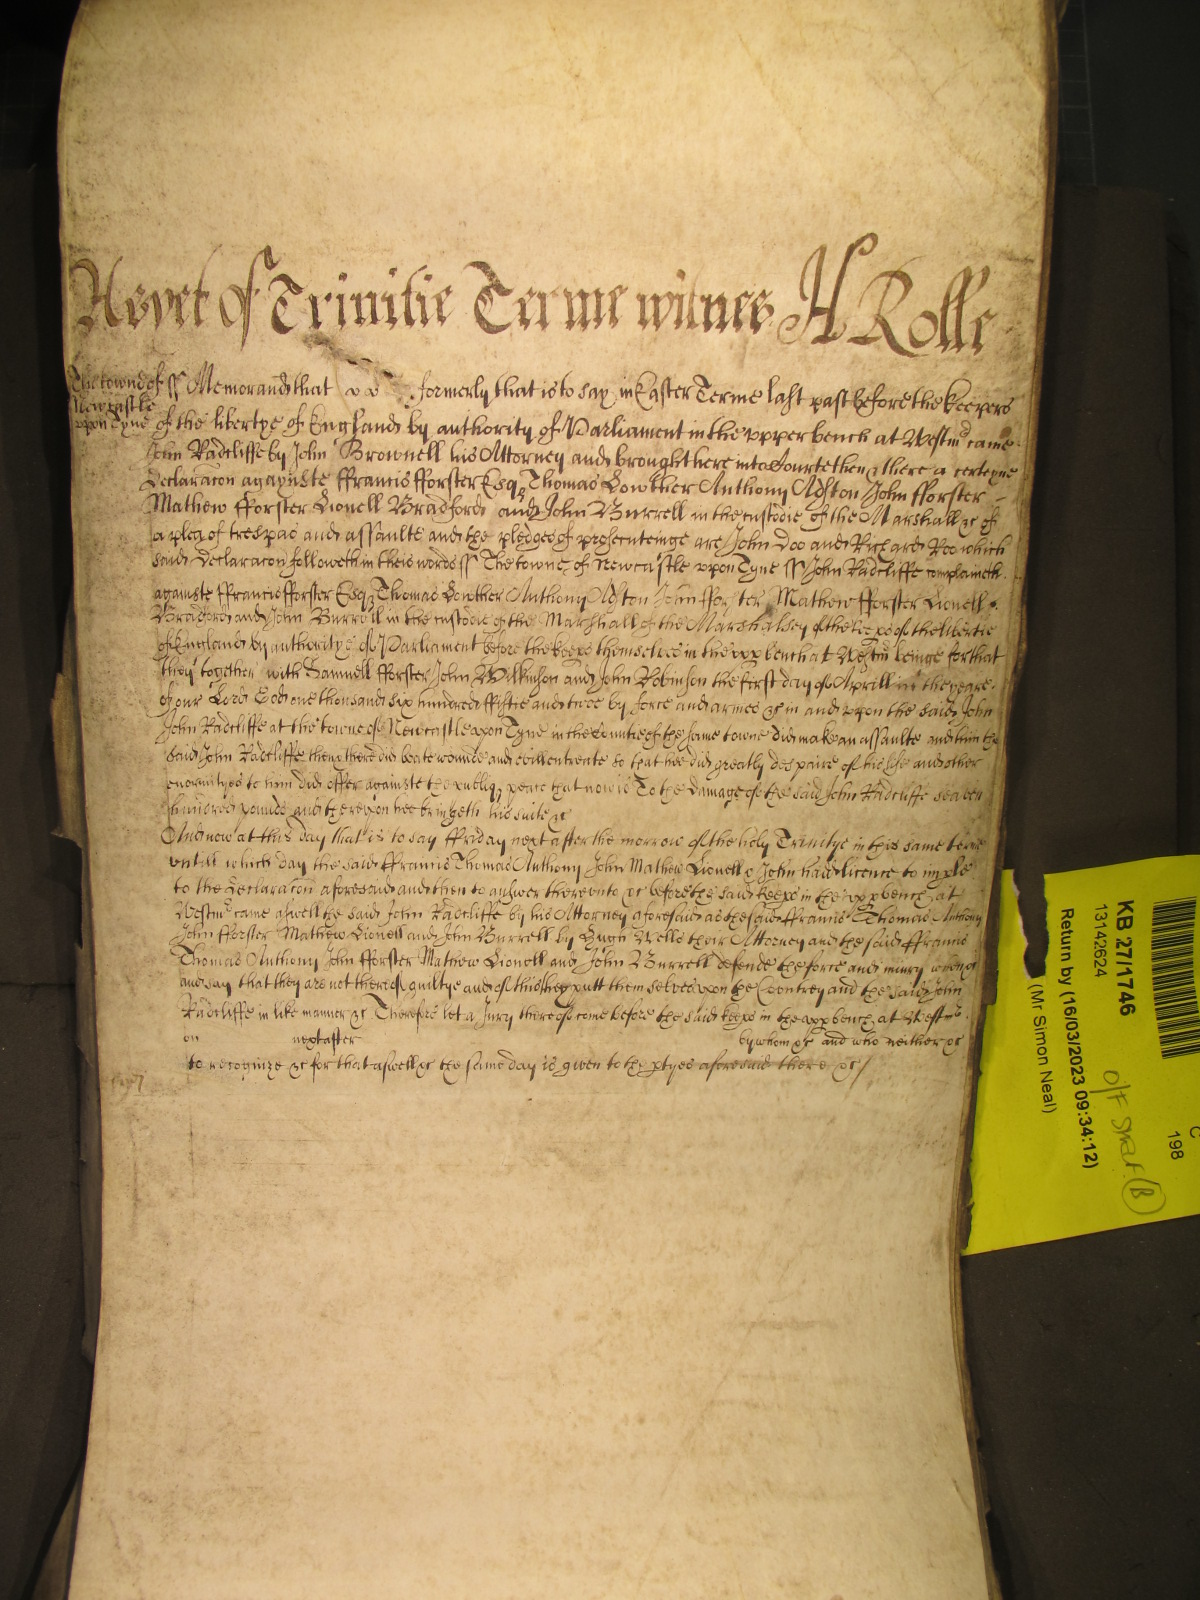 Agayne yet of Trinitie Terme witnes H Rolle
The towne of ss Memorand that formerly that is to say in Easter Terme last past before the keepers
Newcastle
upon Tyne of the libertye of England by authority of Parliament in the upper bench at Westm came
John Radcliffe by John Brownell his Attorney and brought here into Courte then & there a certeyne
declaracon agaynste ffrancis fforster Esqr Thomas Lowther Anthony Alston John fforster
Mathew fforster Lionell Bradford and John Burrell in the custodie of the Marshall &c of
a plea of trespas and assaulte and the pledges of prosecuteinge are John Doo and Richard Roo which
said declaracon followeth in theis words ss The towne of Newcastle upon Tyne ss John Radcliffe complaineth
againste ffrancis fforster Esqr Thomas Lowther Anthony Alston John fforster Mathew fforster Lionell
Bradford and John Burrell in the custodie of the Marshall of the Marshalsey of the keeps of the libertie
of England by authoritye of Parliament before the keeps themselves in the upp bench at Westm beinge for that
they together with Samuell fforster John Wilkinson and John Robinson the first day of Aprill in the yeare
of our Lord God one thousand six hundred fiftie and twoe by force and armes &c in and upon the said John
John Radcliffe at the towne of Newcastle upon Tyne in the Countie of the same towne did make an assaulte and him the
said John Radcliffe then & there did beate wounde and evill entreate so that hee did greatly despaire of his life and other
enormityes to him did offer againste the publiq peace that now is To the damage of the said John Radcliffe seaven
hundred pounds and thereupon hee bringeth his suite &c
And now at this day that is to say ffriday next after the morrow of the holy Trinitye in this same terme
untill which day the said ffrancis Thomas Anthony John Mathew Lionell & John had licence to imple
to the declaracon aforesaid and then to answer thereunto &c before the said keeps in the upp bench at
Westmr came aswell the said John Radcliffe by his Attorney aforesaid as the said ffrancis Thomas Anthony
John fforster Mathew Lionell and John Burrell by Hugh Wells their Attorney and the said ffrancis
Thomas Anthony John fforster Mathew Lionell and John Burrell defende the force and iniury when &c
and say that they are not thereof guiltye and of this they putt themselves upon the Countrey and the said John
Radcliffe in like manner &c Therefore let a Jury thereof come before the said keeps in the upp bench at Westmr
on next after by whom &c and who neither &c
to recognize &c for that aswell &c the same day is given to the ptyes aforesaid there &c /
KB 27/1746
13142624
Return by (16/03/2023 09:34:12)
(Mr Simon Neal)
C
198
O/F
B